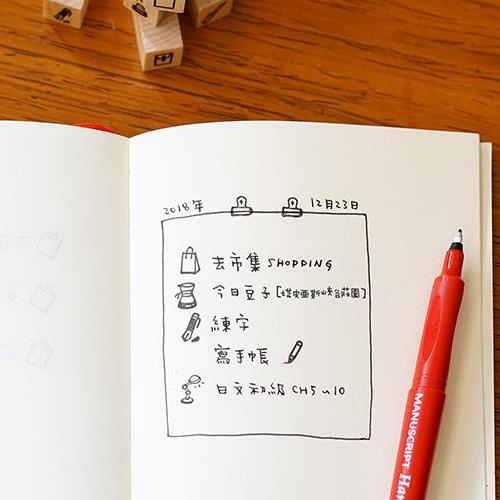 2018年 12月23日
去市集 SHOPPING
今日豆子 [塔皮亞斯峽谷莊園]
練字
寫手帳
日文初級 CH5~10
MANUSCRIPT